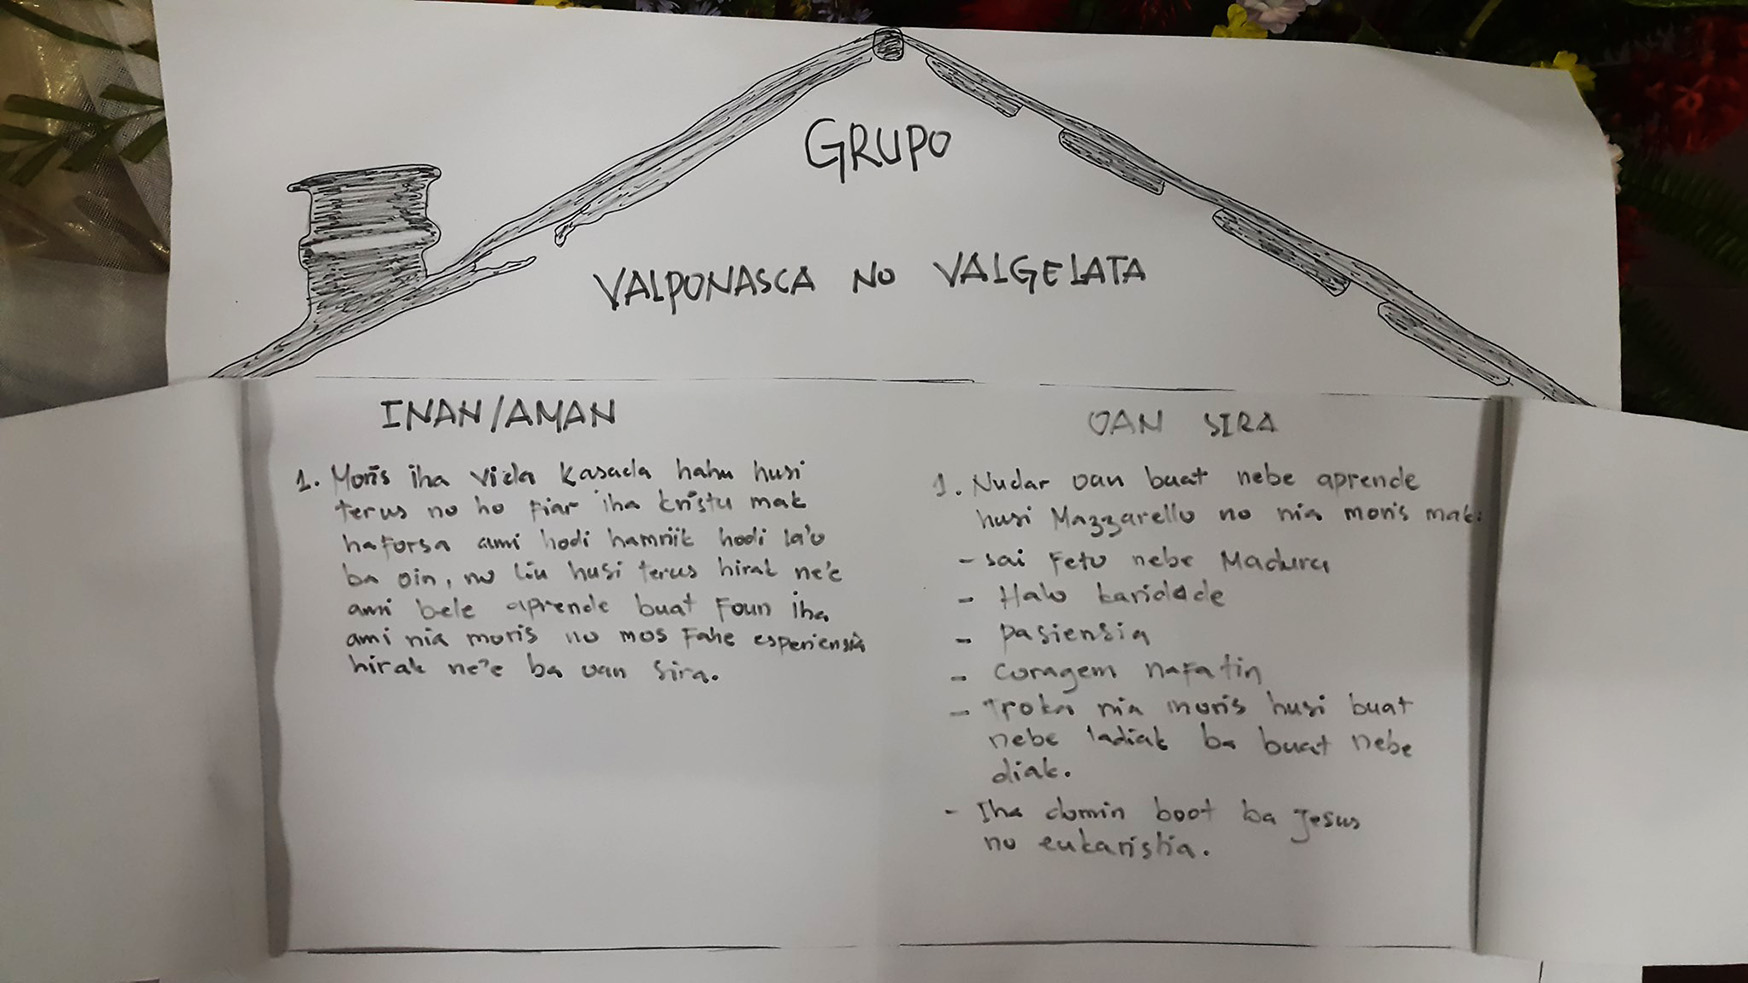 GRUPO
VALPONASCA NO VALGELATA
INAN/AMAN
1. Moris iha vida kasada hahu husi
terus no ho fiar iha kristu mak
haforsa ami hodi hamriik hodi la'o
ba oin, no liu husi terus hirak ne'e
ami bele aprende buat foun iha
ami nia moris no mos fahe esperiensia
hirak ne'e ba oan sira.
OAN SIRA
1. Nudar oan buat nebe aprende
husi Mazzarello no nia moris mak:
- sai feto nebe Madura
- Halo karidade
- pasiensia
- coragem nafatin
- Troka nia moris husi buat
nebe ladiak ba buat nebe
diak.
- Iha domin boot ba Jesus
no eukaristia.